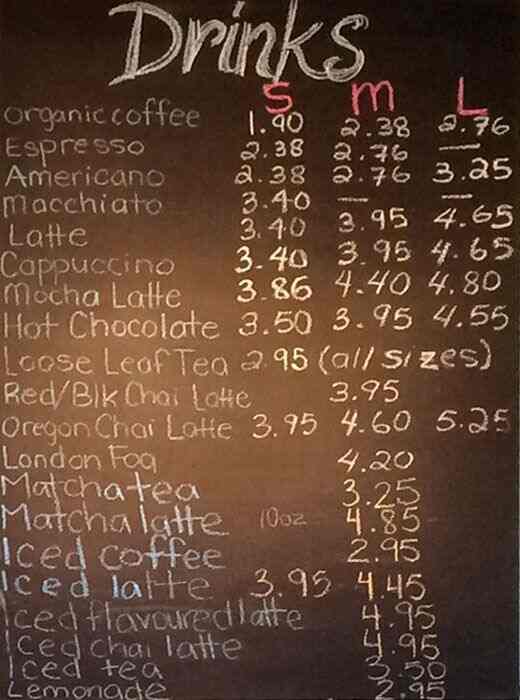 Drinks
S m L
organic coffee 1.90 2.38 2.76
Espresso 2.38 2.76 —
Americano 2.38 2.76 3.25
macchiato 3.40 — —
Latte 3.40 3.95 4.65
Cappuccino 3.40 3.95 4.65
Mocha Latte 3.86 4.40 4.80
Hot Chocolate 3.50 3.95 4.55
Loose Leaf Tea 2.95 (all sizes)
Red/Blk Chai Latte 3.95
Oregon Chai Latte 3.95 4.60 5.25
London Fog 4.20
Matcha tea 3.25
Matcha latte 10oz 4.85
Iced coffee 2.95
Iced latte 3.95 4.45
Iced flavoured latte 4.95
Iced chai latte 4.95
Iced tea 3.50
Lemonade 2.95